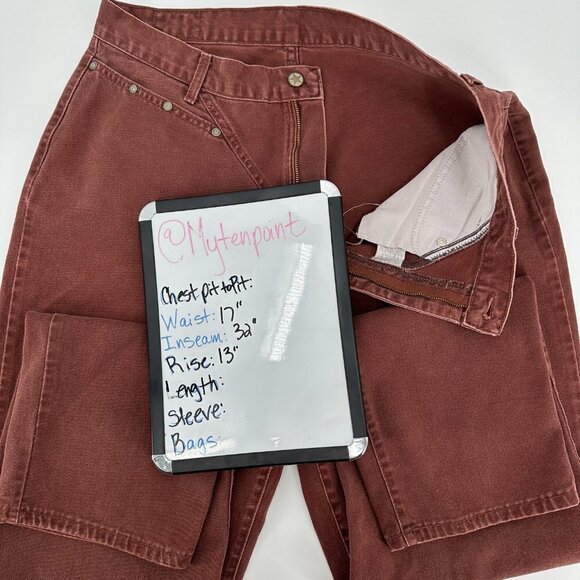 @Mytenpoint
Chest pit to Pit:
Waist: 17"
Inseam: 32"
Rise: 13"
Length:
Sleeve:
Bags: